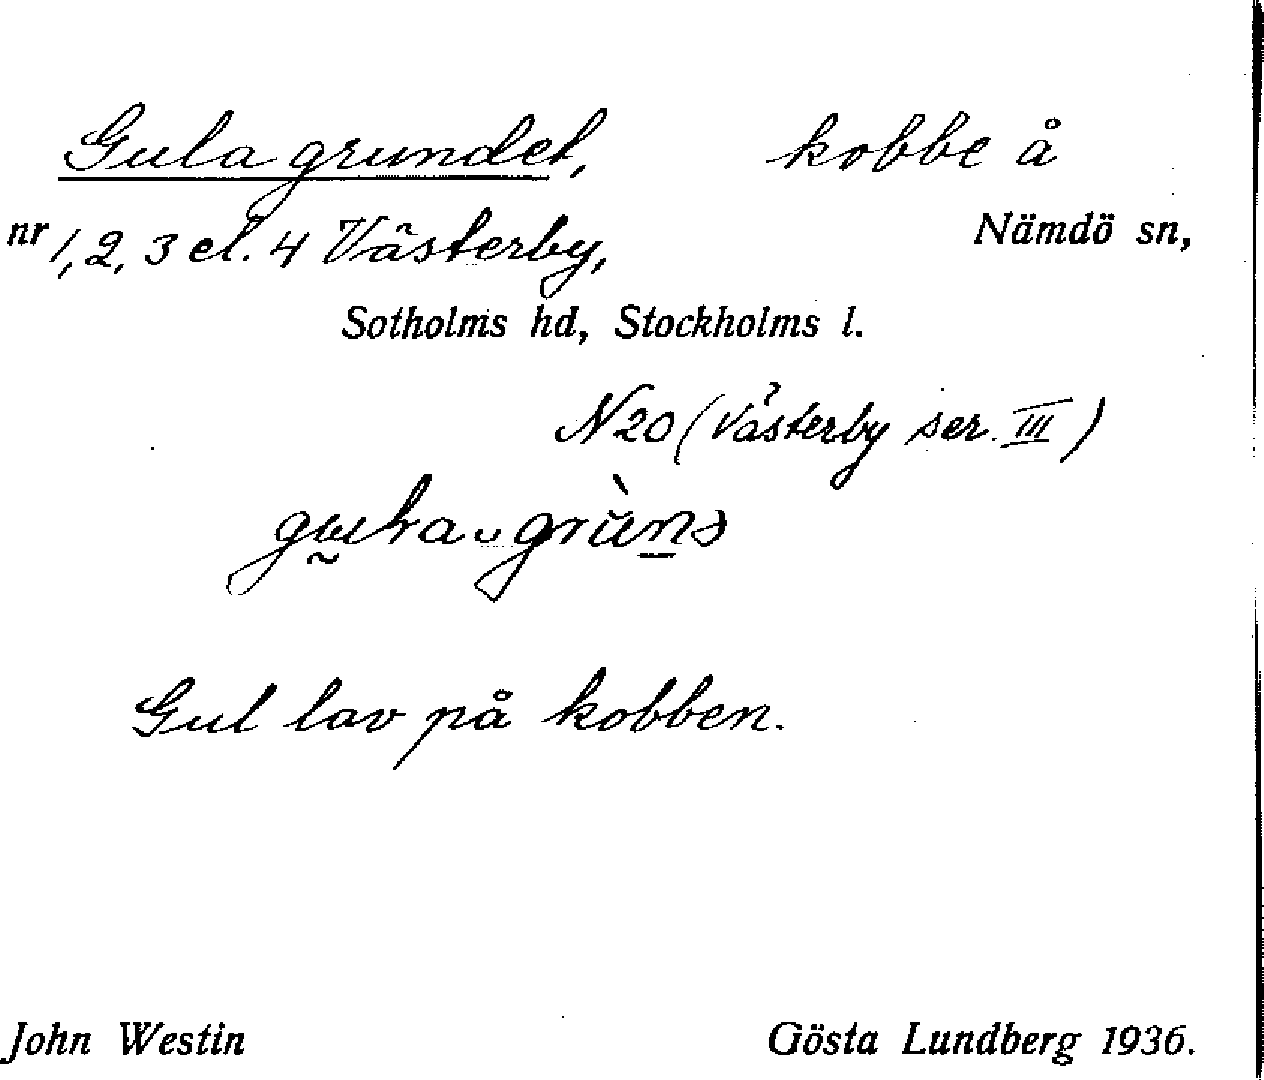 Gula grundet, kobbe å
nr 1, 2, 3 el. 4 Västerby, Nämdö sn,
Sotholms hd, Stockholms l.
N 20 (Västerby ser. III)
Gul lav på kobben.
John Westin Gösta Lundberg 1936.